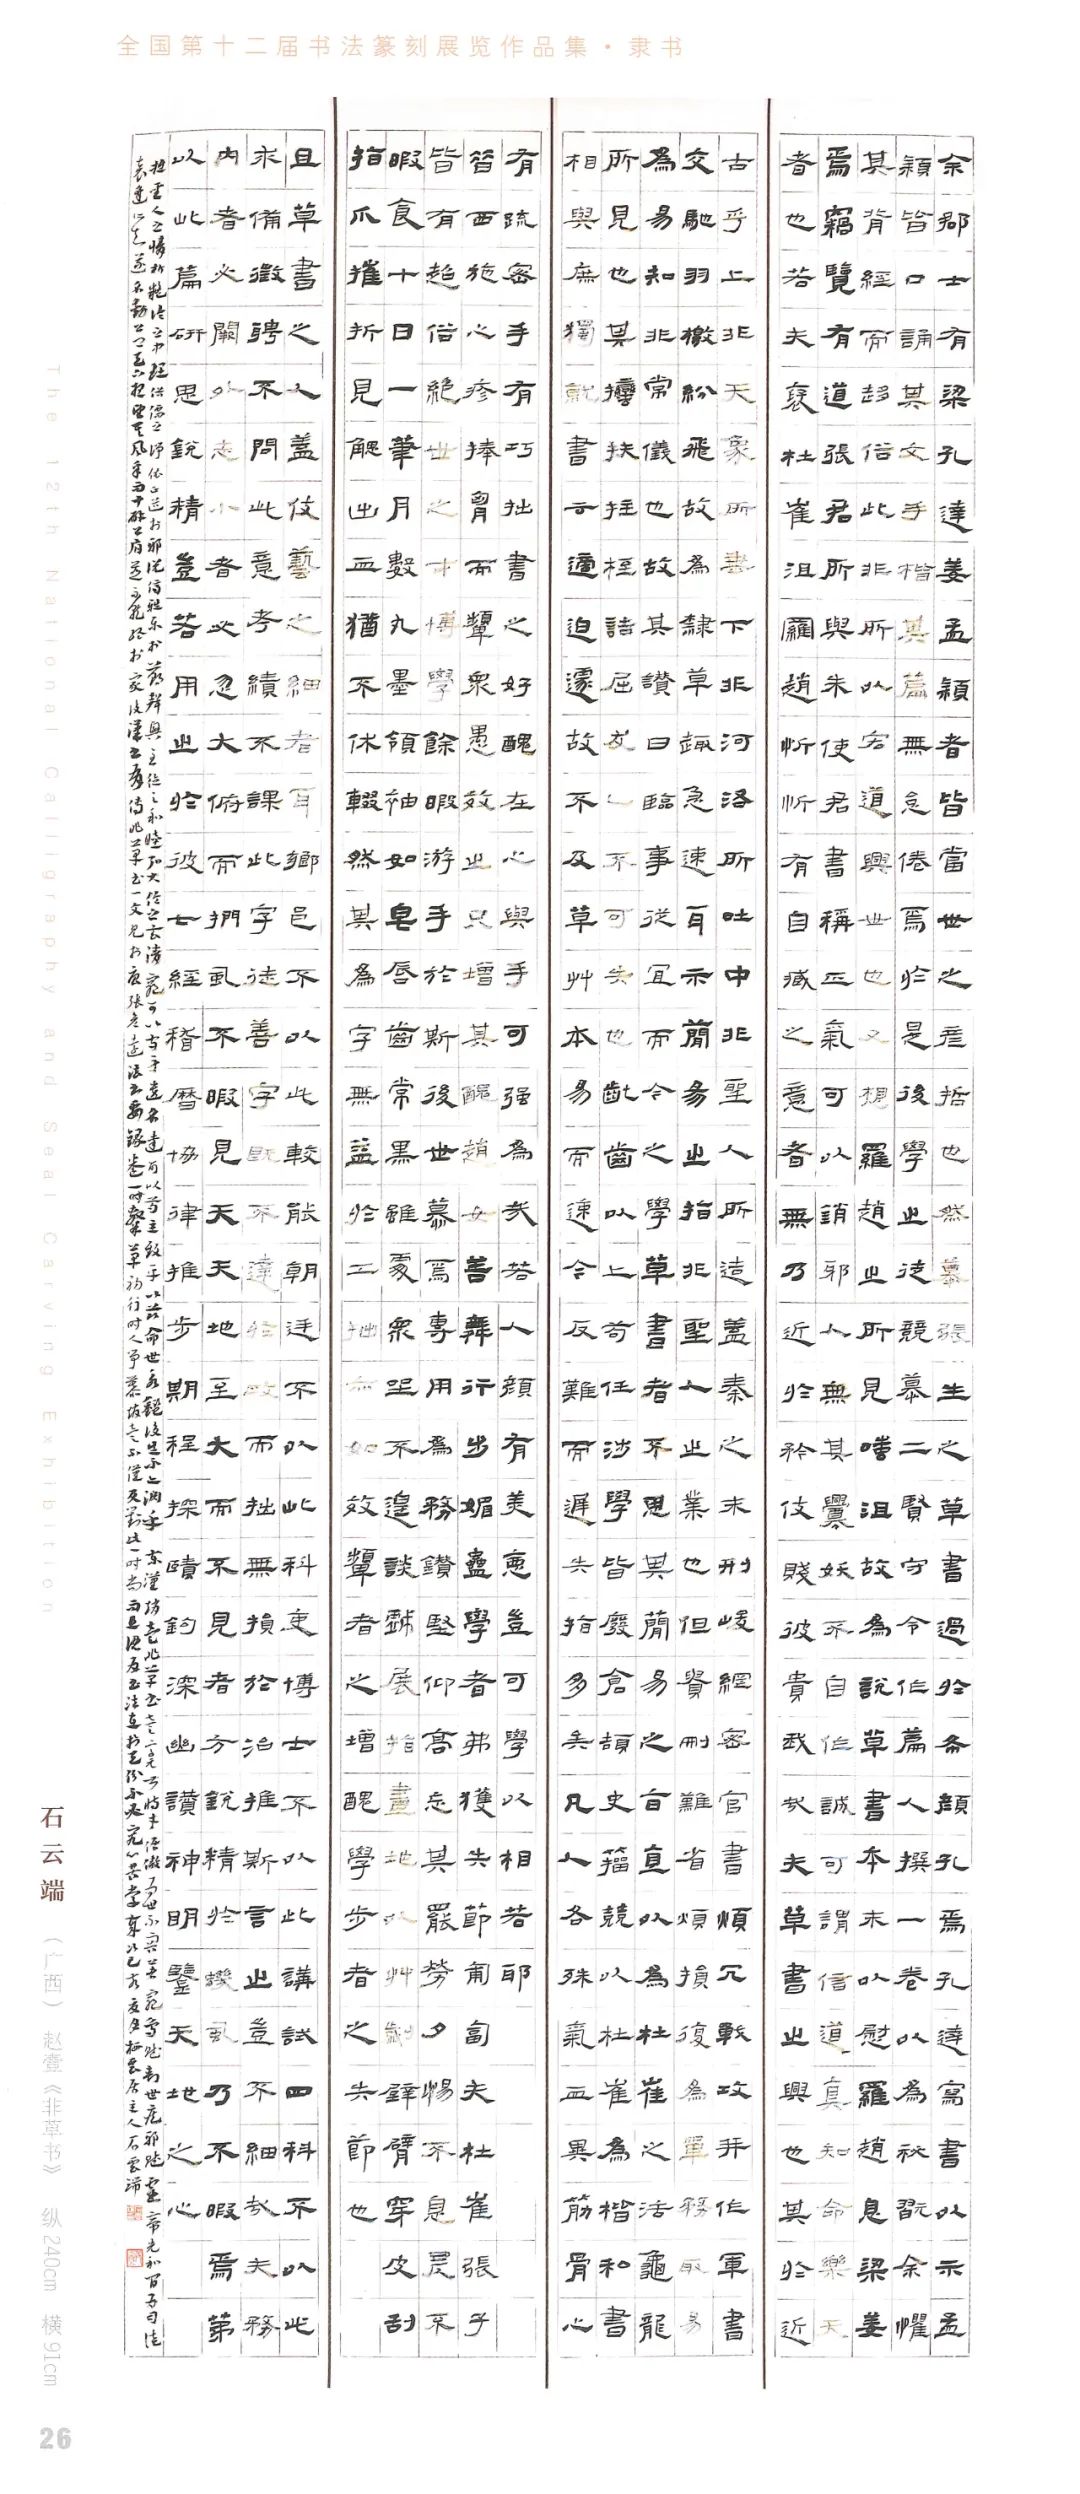 全国第十二届书法篆刻展览作品集·隶书
余郡士有梁孔達姜孟穎者皆當世之彥哲也然慕張生之草書過於希顏孔焉孔達寫書以示孟
穎皆口誦其文手楷其篇無怠倦焉於是後學之徒競慕二賢守令作篇人撰一卷以為祕翫余懼
其背經而趍俗此非所以宏道興世也又想羅趙之所見嗤沮故為說草書本末以慰羅趙息梁姜
焉竊覽有道張君所與朱使君書稱正氣可以銷邪人無其釁妖不自作誠可謂信道真知命樂天
者也若夫褒杜崔沮羅趙忻忻有自臧之意者無乃近於矜伎賤彼貴我哉夫草書之興也其於近
古乎上非天象所垂下非河洛所吐中非聖人所造蓋秦之末刑峻網密官書煩冗戰攻并作軍書
交馳羽檄紛飛故為隸草趣急速耳示簡易之指非聖人之業也但貴刪難省煩損復為單務取易
為易知非常儀也故其讚曰臨事從宜而今之學草書者不思其簡易之旨直以為杜崔之法龜龍
所見也其扶拄桎詰屈犮乙不可失也齔齒以上苟任涉學皆廢倉頡史籀競以杜崔為楷和書
相與庶獨就書云適迫遽故不及草艸本易而速今反難而遲失指多矣凡人各殊氣血異筋骨心
有疏密手有巧拙書之好醜在心與手可强為哉若人顏有美惡豈可學以相若耶
昔西施心疹捧胷而顰衆愚效之只增其醜趙女善舞行步媚蠱學者弗獲失節匍匐夫杜崔張子
皆有超俗絕世之才博學餘暇游手於斯後世慕焉專用為務鑽堅仰高忘其罷勞夕惕不息昃不
暇食十日一筆月數丸墨領袖如皂唇齒常黑雖處衆坐不遑談戲展指畫地以艸劌壁臂穿皮刮
指爪摧折見䚡出血猶不休輟然其為字無益於工拙亦如效顰者之增醜學步者之失節也
且草書之人蓋伎藝之細者耳鄉邑不以此較能朝廷不以此科吏博士不以此講試四科不以此
求備徵聘不問此意考績不課此字徒善字既不達於政而拙無損於治推斯言之豈不細哉夫務
內者必闕外志小者必忽大俯而捫虱不暇見天天地至大而不見者方銳精於蟣虱乃不暇焉第
以此篇研思銳精豈若用之於彼七經稽曆協律推步期程探賾鈎深幽讚神明鑒天地之心
The 12th National Calligraphy and Seal Carving Exhibition
石云端 （广西） 赵壹《非草书》 纵240cm 横91cm
26